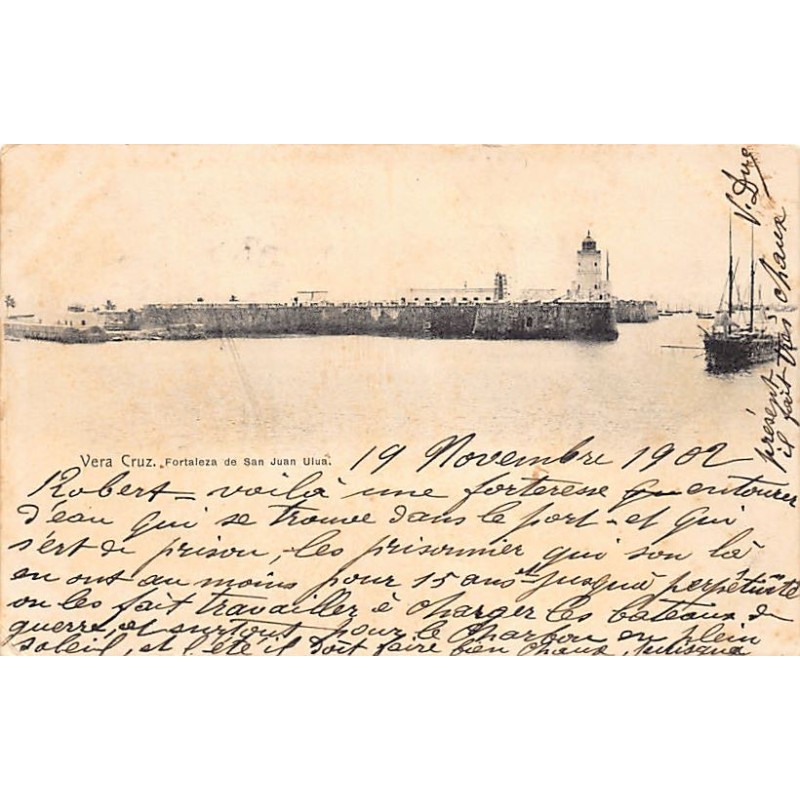 Vera Cruz. Fortaleza de San Juan Ulua.
19 Novembre 1902
Robert – voilà une forteresse entourer
d'eau qui se trouve dans le port – et qui
s'ert de prison, – les prisonnier qui son là
en ont au moins pour 15 ans et jusquà perpétuité
on les fait travailler à charger les bateaux de
guerre, et surtout pour le charbon en plein
soleil, et l'été il doit faire bien chaux, puisque
présent
il fait très chaux